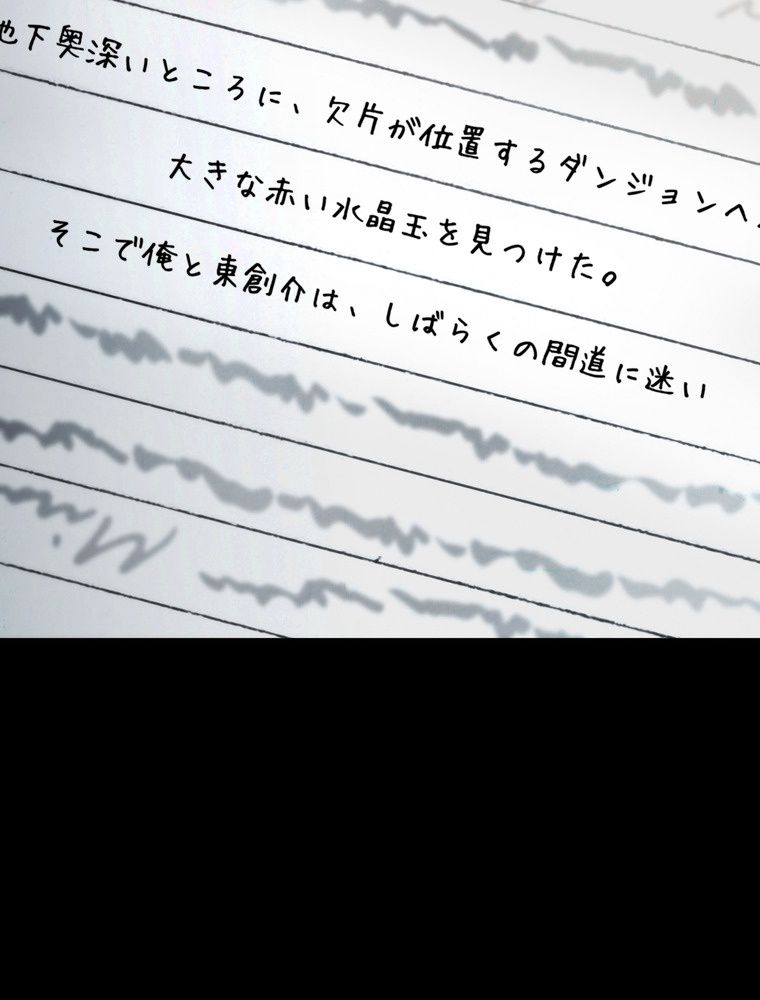 地下奥深いところに、欠片が位置するダンジョンへ
大きな赤い水晶玉を見つけた。
そこで俺と東創介は、しばらくの間道に迷い